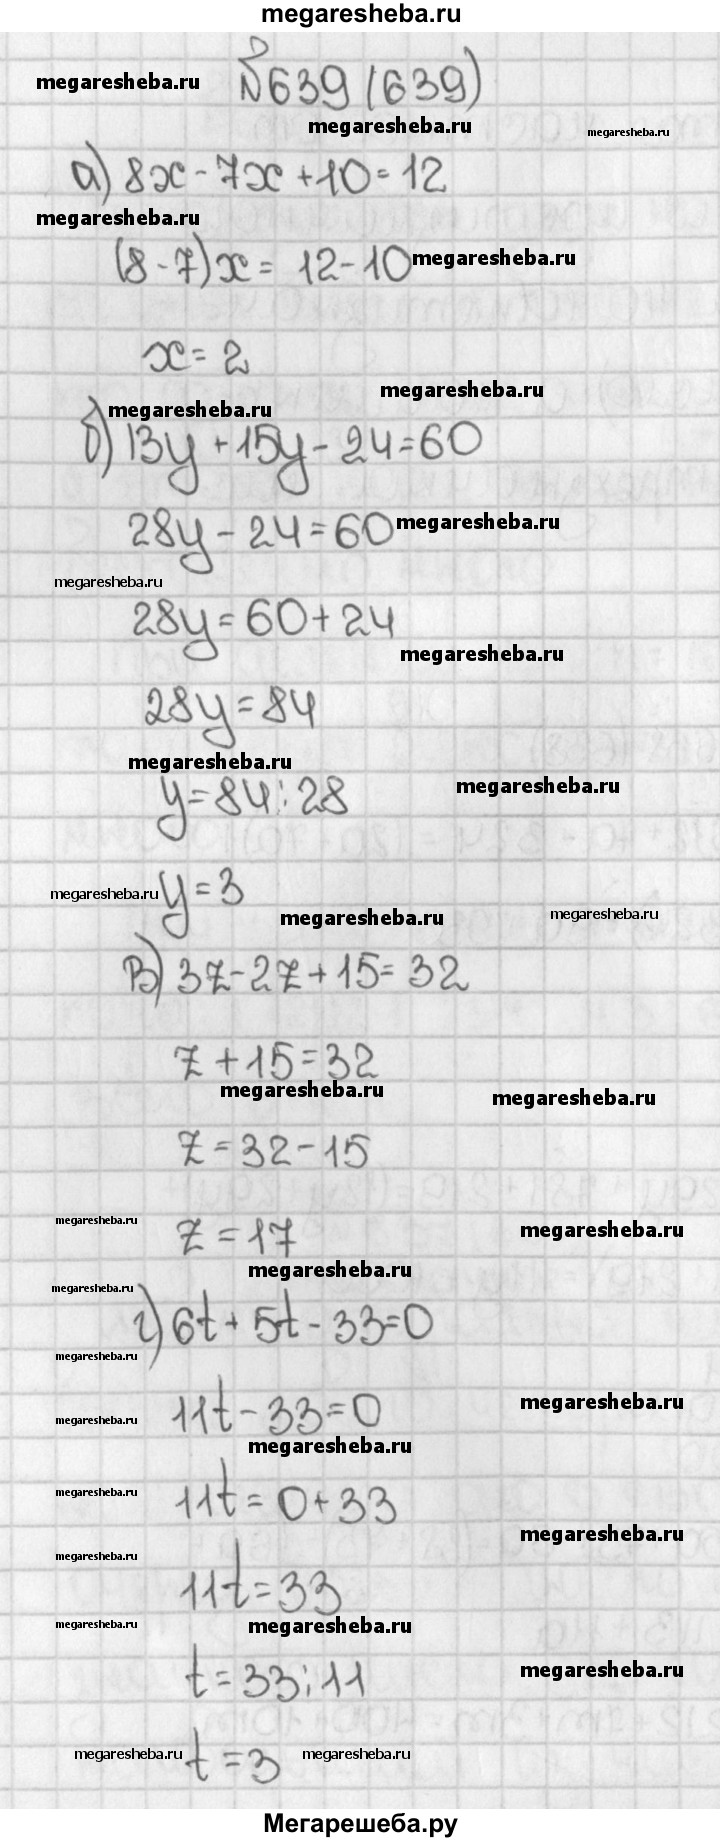 megaresheba.ru
№639 (639)
megaresheba.ru
megaresheba.ru
megaresheba.ru
а) 8x - 7x + 10 = 12
megaresheba.ru
(8 - 7)x = 12 - 10 megaresheba.ru
x = 2
megaresheba.ru
megaresheba.ru
б) 13y + 15y - 24 = 60
28y - 24 = 60 megaresheba.ru
megaresheba.ru
28y = 60 + 24
megaresheba.ru
28y = 84
megaresheba.ru
megaresheba.ru
y = 84 : 28
megaresheba.ru y = 3
megaresheba.ru
megaresheba.ru
в) 3z - 2z + 15 = 32
z + 15 = 32
megaresheba.ru
megaresheba.ru
z = 32 - 15
megaresheba.ru
megaresheba.ru
z = 17
megaresheba.ru
megaresheba.ru
г) 6t + 5t - 33 = 0
megaresheba.ru
megaresheba.ru
11t - 33 = 0
megaresheba.ru
megaresheba.ru
megaresheba.ru
11t = 0 + 33
megaresheba.ru
megaresheba.ru
11t = 33
megaresheba.ru
megaresheba.ru
t = 33 : 11
megaresheba.ru
megaresheba.ru t = 3 megaresheba.ru
Мегарешеба.ру